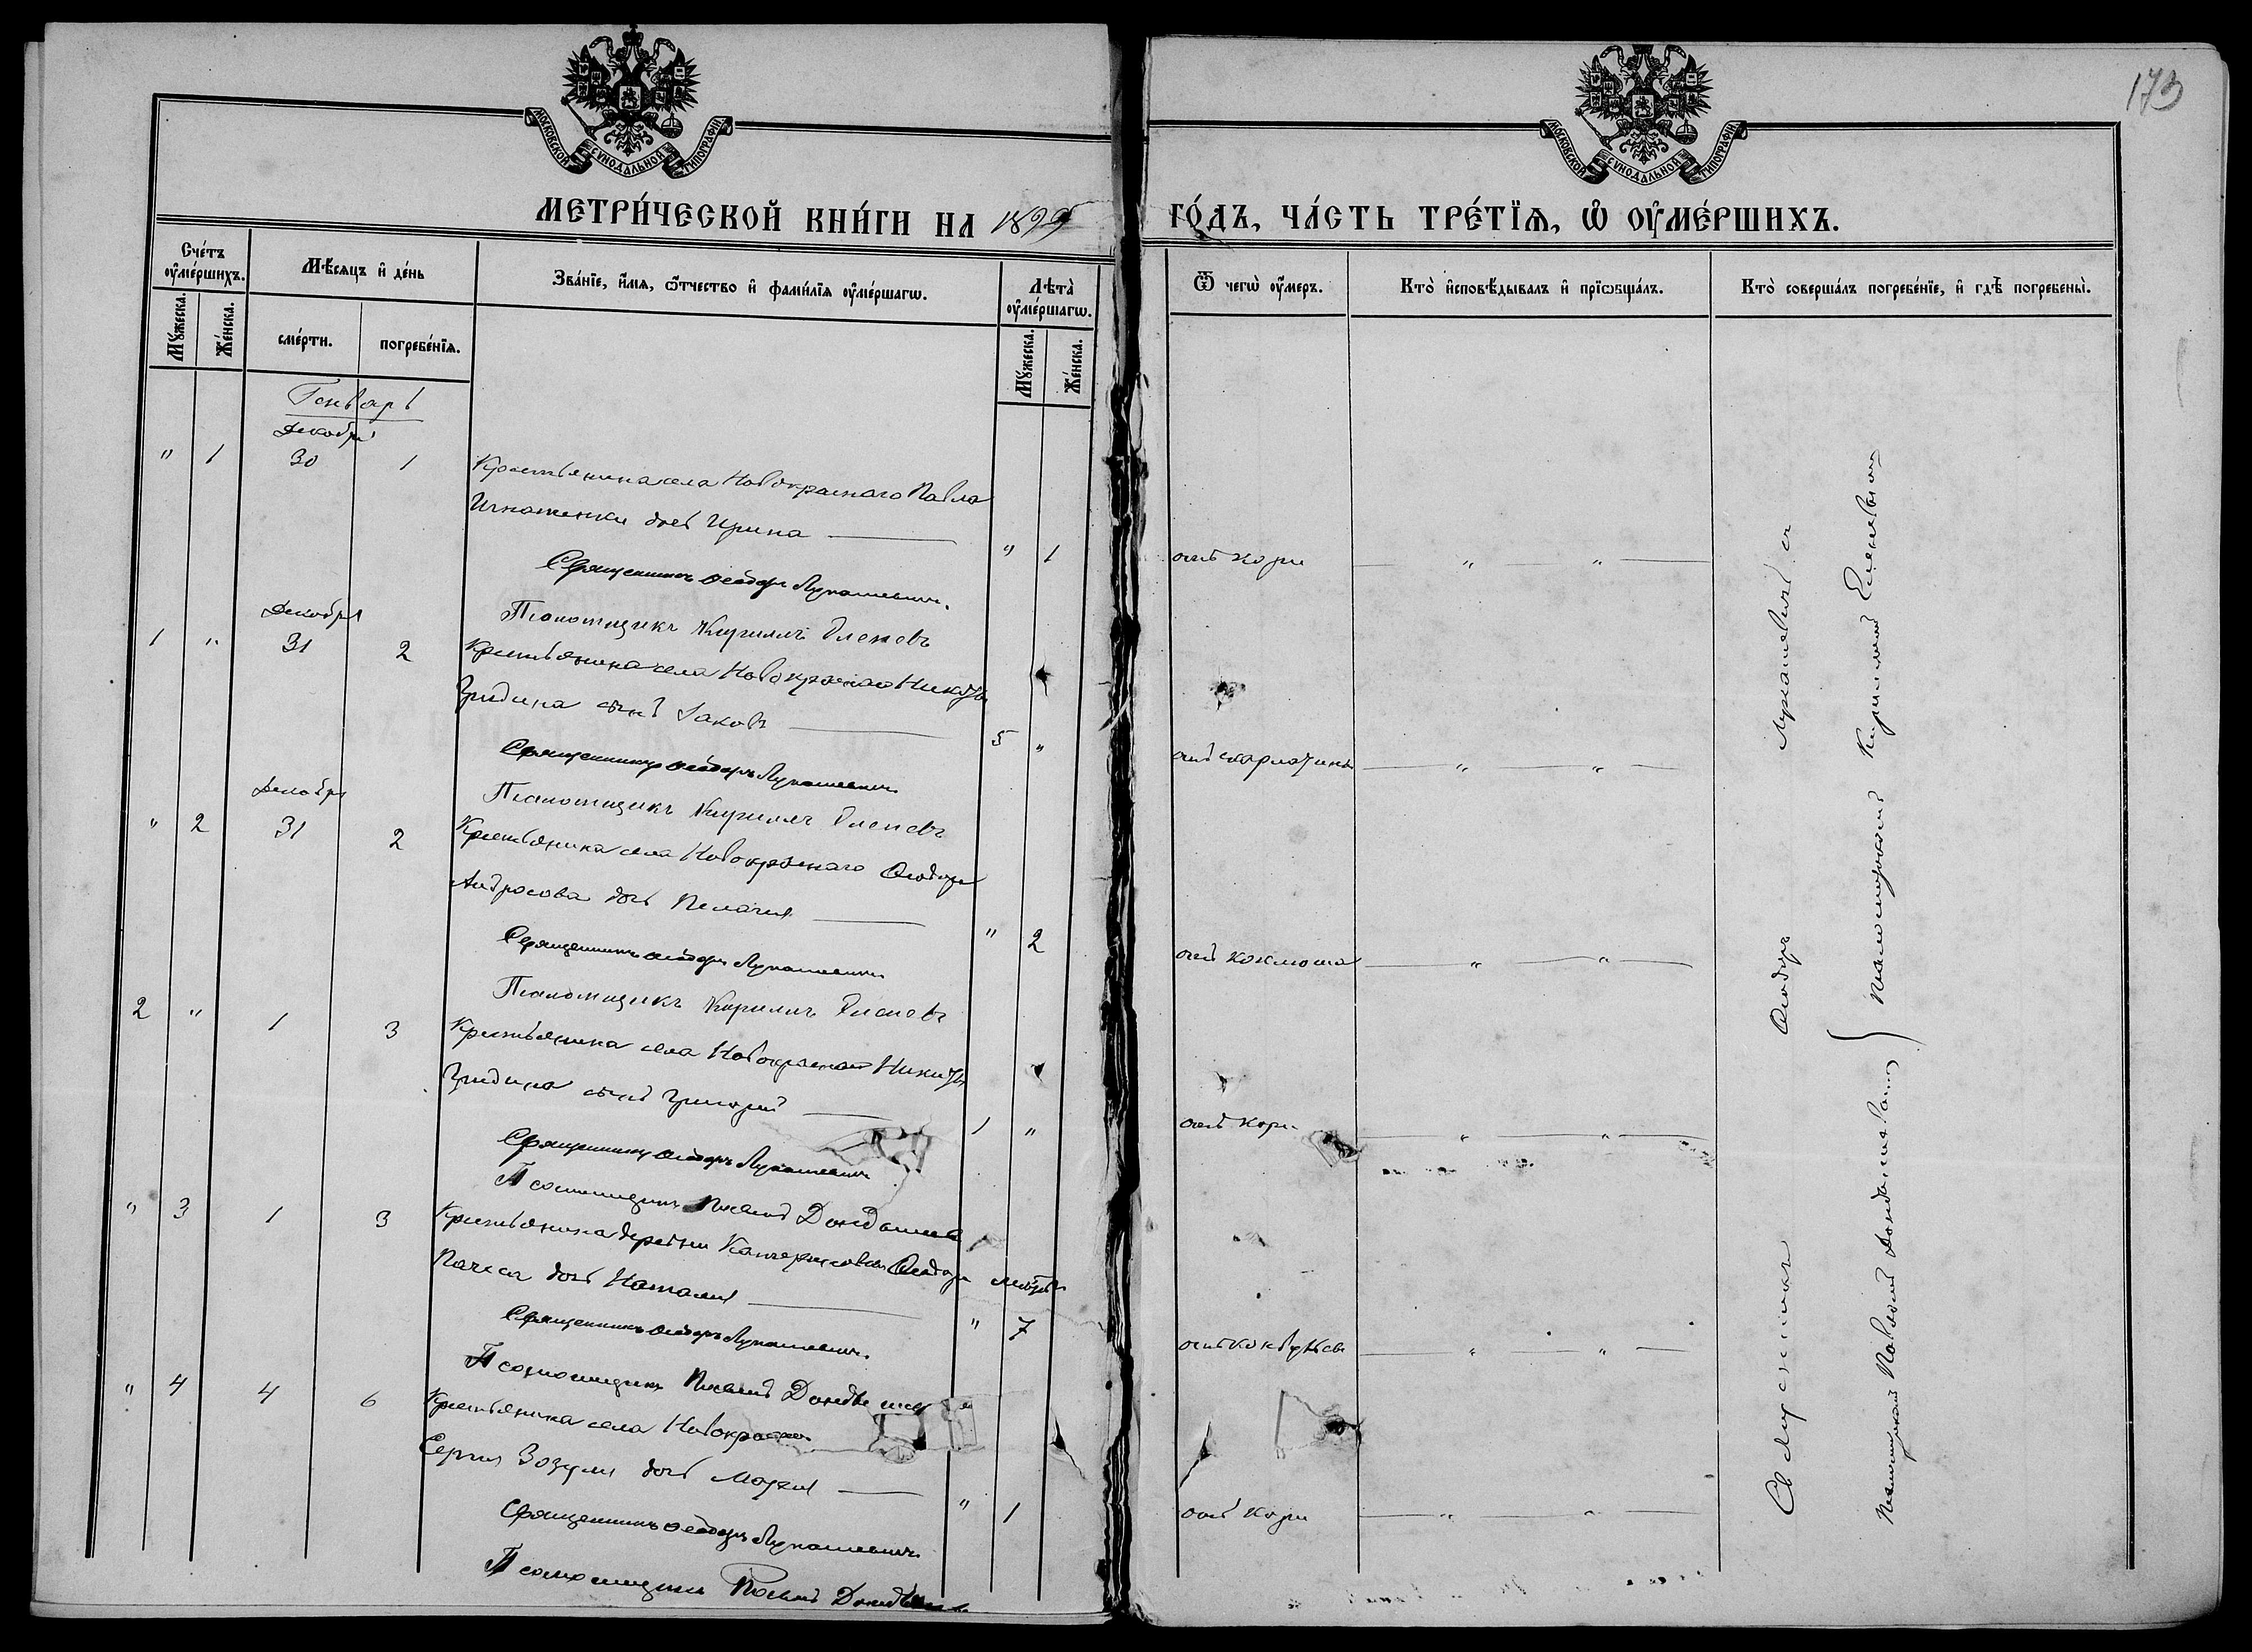 173
МОСКОВСКОЙ СѴНОДАЛЬНОЙ ТИПОГРАФІИ
МОСКОВСКОЙ СѴНОДАЛЬНОЙ ТИПОГРАФІИ
МЕТРИ́ЧЕСКОЙ КНИ́ГИ НА 1899
ГО́ДЪ, ЧА́СТЬ ТРЕ́ТЇѦ, Ѽ ОУ҆МЕ́РШИХЪ.
Сче́тъ оу҆ме́ршихъ.
Мꙋ́жеска.
Же́нска.
Мѣ́сяцъ и҆ де́нь
сме́рти.
погребе́нїѧ.
Зва́нїе, и҆́мѧ, ѻ҆́тчество и҆ фамі́лїѧ оу҆ме́ршагѡ.
Лѣта̀ оу҆ме́ршагѡ.
Мꙋ́жеска.
Же́нска.
Ѿ чегѡ̀ оу҆́меръ.
Кто̀ и҆сповѣ́дывалъ и҆ прїѡбща́лъ.
Кто̀ соверша́лъ погребе́нїе, и҆ гдѣ̀ погребены̀.
Генварь
Декабря
" 1 30 1 Крестьянина села Новокраснаго Павла
Игнатенки дочь Ирина " 1 отъ кори " "
Священникъ Ѳеодоръ Лукашевичъ.
Псаломщикъ Кириллъ Еленевъ
Декабря
1 " 31 2 Крестьянина села Новокраснаго Никиты
Гридина сынъ Іаковъ 5 " отъ скарлатины " "
Священникъ Ѳеодоръ Лукашевичъ
Псаломщикъ Кириллъ Еленевъ
Декабря
" 2 31 2 Крестьянина села Новокраснаго Ѳеодора
Андросова дочь Пелагія " 2 отъ коклюша " "
Священникъ Ѳеодоръ Лукашевичъ
Псаломщикъ Кириллъ Еленевъ
2 " 1 3 Крестьянина села Новокраснаго Никиты
Гридина сынъ Григорій 1 " отъ кори " "
Священникъ Ѳеодоръ Лукашевичъ
Псаломщикъ Павелъ
" 3 1 3 Крестьянина деревни Ѳеодора
дочь Наталія " 7 отъ " "
Священникъ Ѳеодоръ Лукашевичъ.
Псаломщикъ Павелъ
" 4 4 6 Крестьянина села Новокраснаго
Сергія Зозули дочь Марія " 1 отъ кори " "
Священникъ Ѳеодоръ Лукашевичъ
Псаломщикъ Павелъ
Священникъ Ѳеодоръ Лукашевичъ съ
псаломщикомъ Кирилломъ Еленевымъ